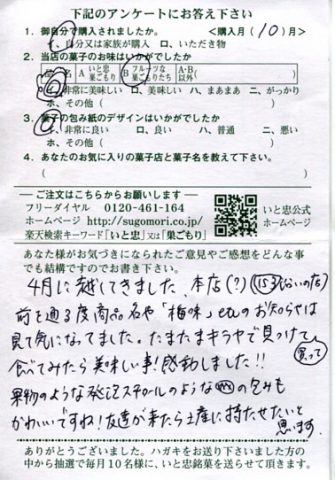 下記のアンケートにお答え下さい
1. 御自分で購入されましたか。 <購入月(10)月>
イ、自分又は家族が購入 ロ、いただき物
2. 当店の菓子のお味はいかがでしたか
品名 A いと忠巣ごもり B フルーツな巣ごもりたち A・B以外( )
イ、非常に美味しい ロ、美味しい ハ、まあまあ ニ、がっかり
ホ、その他( )
3. 菓子の包み紙のデザインはいかがですか
イ、非常に良い ロ、良い ハ、普通 ニ、悪い
ホ、その他( )
4. あなたのお気に入りの菓子店と菓子名を教えて下さい。
( )
ご注文はこちらからお願いします
フリーダイヤル 0120-461-164
ホームページ http://sugomori.co.jp/
楽天検索キーワード「いと忠」又は「巣ごもり」
いと忠公式
ホームページ
あなた様がお気づきになられたご意見やご感想をどんな事
でも結構ですのでお書き下さい。
4月に越してきました。本店(?)(153ぞいの店)
前を通る度商品名や「梅味」etcのお知らせは
見て気になってました。たまたまキラヤで見つけて
買って
食べてみたら美味しい事!感動しました!!
果物のような発泡スチロールのような の包みも
かわいいですね!友達が来たら土産に持たせたいと
思います。
ありがとうございました。ハガキをお送り下さいました方の
中から抽選で毎月10名様に、いと忠銘菓を送らせて頂きます。